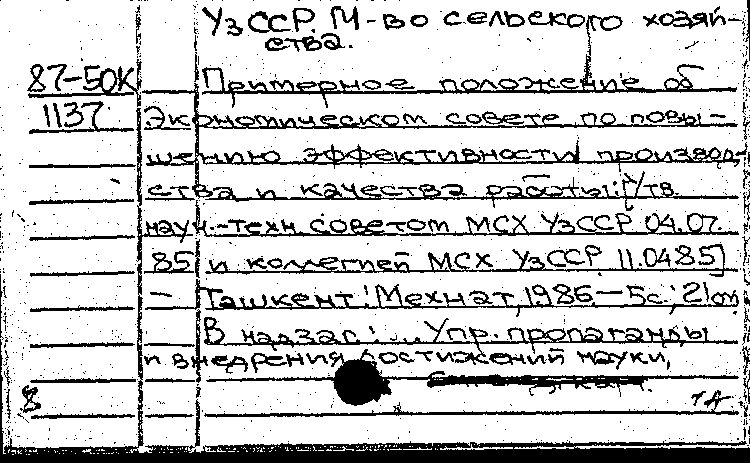 УзССР. М-во сельского хозяй-
ства.
87-50К Примерное положение об
1137 Экономическом совете по повы-
шению эффективности производ-
ства и качества работы: [Утв.
науч.-техн. советом МСХ УзССР 04.07.
85 и коллегией МСХ УзССР 11.0485]
- Ташкент: Мехнат, 1986.-5с.; 21см.
В надзаг.: ... Упр. пропаганды
и внедрения достижений науки,
8